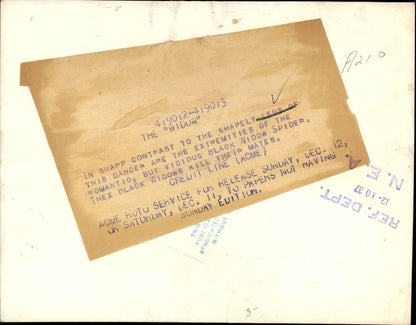 A210
419012-419013
THE "WIDOW"
IN SHARP CONTRAST TO THE SHAPELY LEGS OF
THIS DANCER ARE THE EXTREMITIES OF THE
ROMANTIC, BUT VICIOUS BLACK WIDOW SPIDER.
THE BLACK WIDOWS KILL THEIR MATES.
CREDIT LINE (ACME)
ACME ROTO SERVICE FOR RELEASE SUNDAY, DEC. 12,
OR SATURDAY, DEC. 11, TO PAPERS NOT HAVING
SUNDAY EDITION.
REF. DEPT.
12.10.37
N. E. A.
THIS
PUBLIC
SYNDICATED
WITHOUT